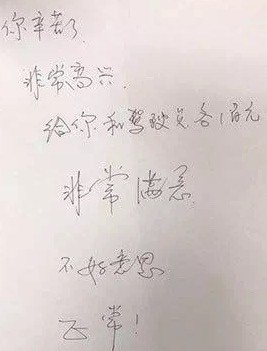 你辛苦了
非常高兴
给你和驾驶员各1百元
非常满意
不好意思
正常!